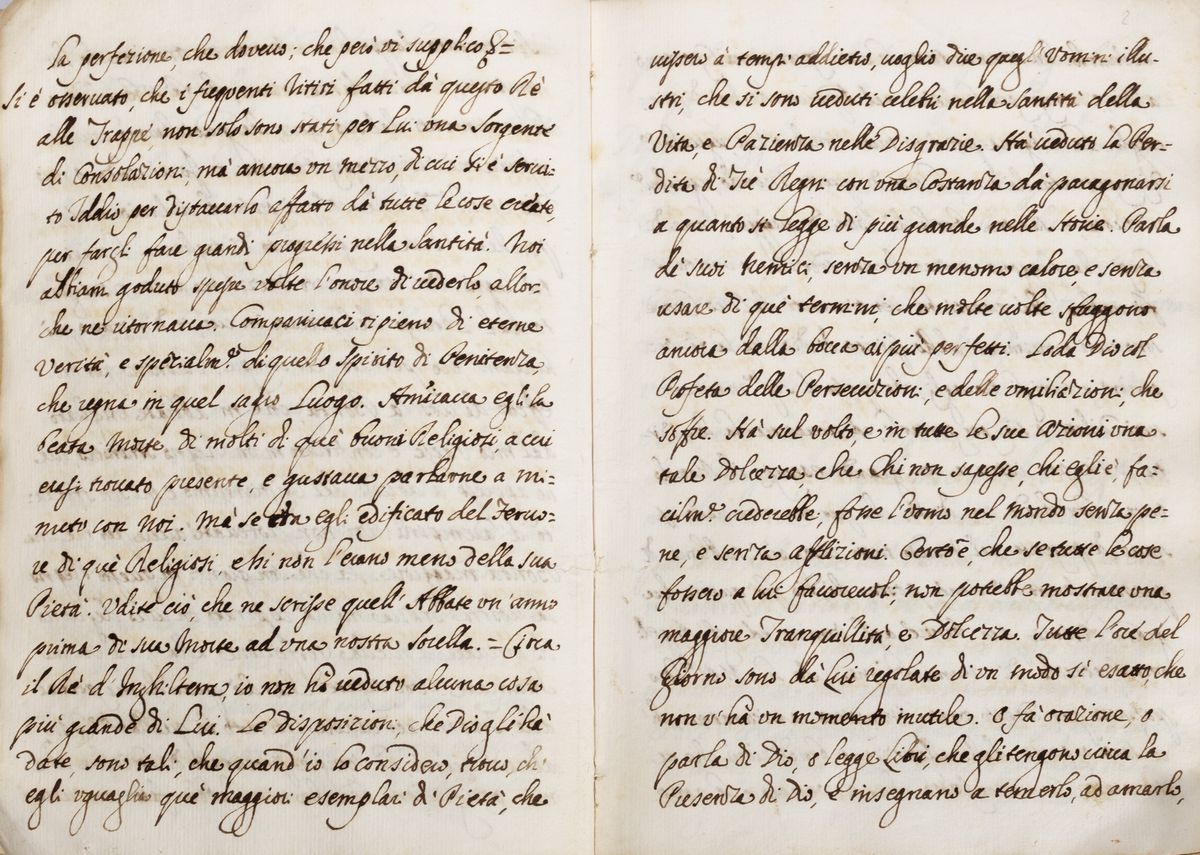 la perfezione, che doveuo; che però vi supplico &=
Si è osseruato, che i frequenti Ritiri fatti dà questo Rè
alle Trappe, non solo sono stati per Lui vna Sorgente
di Consolazioni, mà ancora vn mezzo, di cui si è serui=
to Iddio per distaccarlo affatto dà tutte le cose create,
per fargli fare grandi progressi nella Santità. Noi
abbiam goduto spesse volte l'onore di uederlo, allor=
che ne ritornaua. Compariuaci ripieno di eterne
Verità, e spezialm.e di quello spirito di Penitenza
che regna in quel sacro Luogo. Amiraua egli la
beata Morte di molti di que' buoni Religiosi, a cui
erasi trouato presente, e gustaua parlarne a mi=
nuto con Noi. Mà se era egli edificato del Feruo=
re di què Religiosi, essi non l'erano meno della sua
Pietà. Vdite ciò, che ne scrisse quell'Abbate vn'anno
prima di sua Morte ad vna nostra Sorella. = Circa
il Rè d'Inghilterra, io non hò ueduto alcuna cosa
più grande di Lui. Le disposizioni, che Dio gli hà
date, sono tali, che quand'io lo considero, trouo, ch'
egli vguaglia què maggiori esemplari di Pietà, che
2
uissero à tempi addietro, uoglio dire quegl'Vomini illu=
stri, che si sono ueduti celebri nella Santità della
Vita, e Pazienza nelle Disgrazie. Hà ueduto la Per=
dita di Trè Regni con vna Costanza dà paragonarsi
a quanto si legge di più grande nelle Storie. Parla
de' suoi Nemici, senza vn menomo calore, e senza
usare di què termini, che molte volte sfuggono
ancora dalla bocca ai più perfetti. Loda Dio col
Profeta delle Persecuzioni, e delle vmiliazioni, che
soffre. Hà sul volto, e in tutte le sue Azioni vna
tale Dolcezza, che Chi non sapesse, chi egli è, fa=
cilm.e crederebbe, fosse l'vomo nel Mondo senza pe=
ne, e senza afflizioni. Certo è, che se tutte le cose
fossero a lui fauoreuoli, non potrebbe mostrare vna
maggiore Tranquillità, e Dolcezza. Tutte l'ore del
Giorno sono dà Lui regolate di vn modo sì esatto, che
non v'hà vn momento inutile. O, fà orazione, o
parla di Dio, o legge Libri, che gli tengono uiua la
Presenza di Dio, e insegnano a temerlo, ad amarlo,